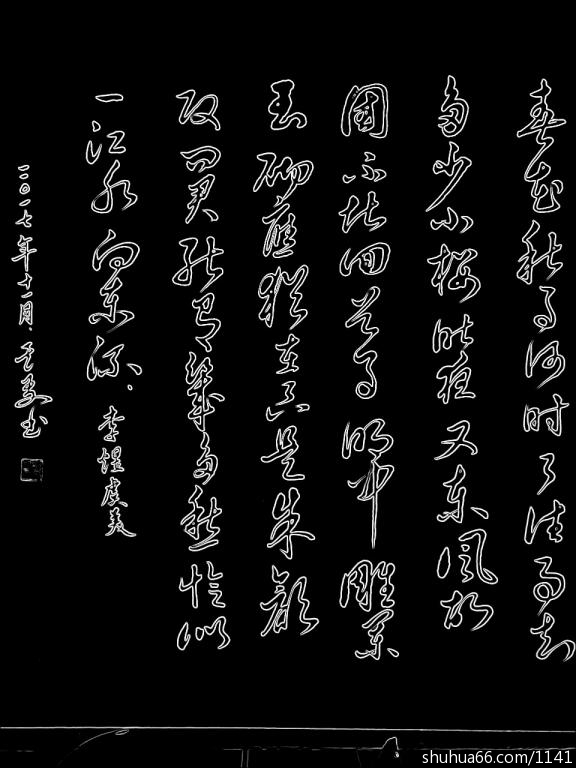 春花秋月何时了往事知
多少小楼昨夜又东风故
國不堪回首月明中雕阑
玉砌應猶在只是朱颜
改问君能有幾多愁恰似
一江水向东流、李煜虞美
二〇一七年十一月、书
shuhua66.com/1141